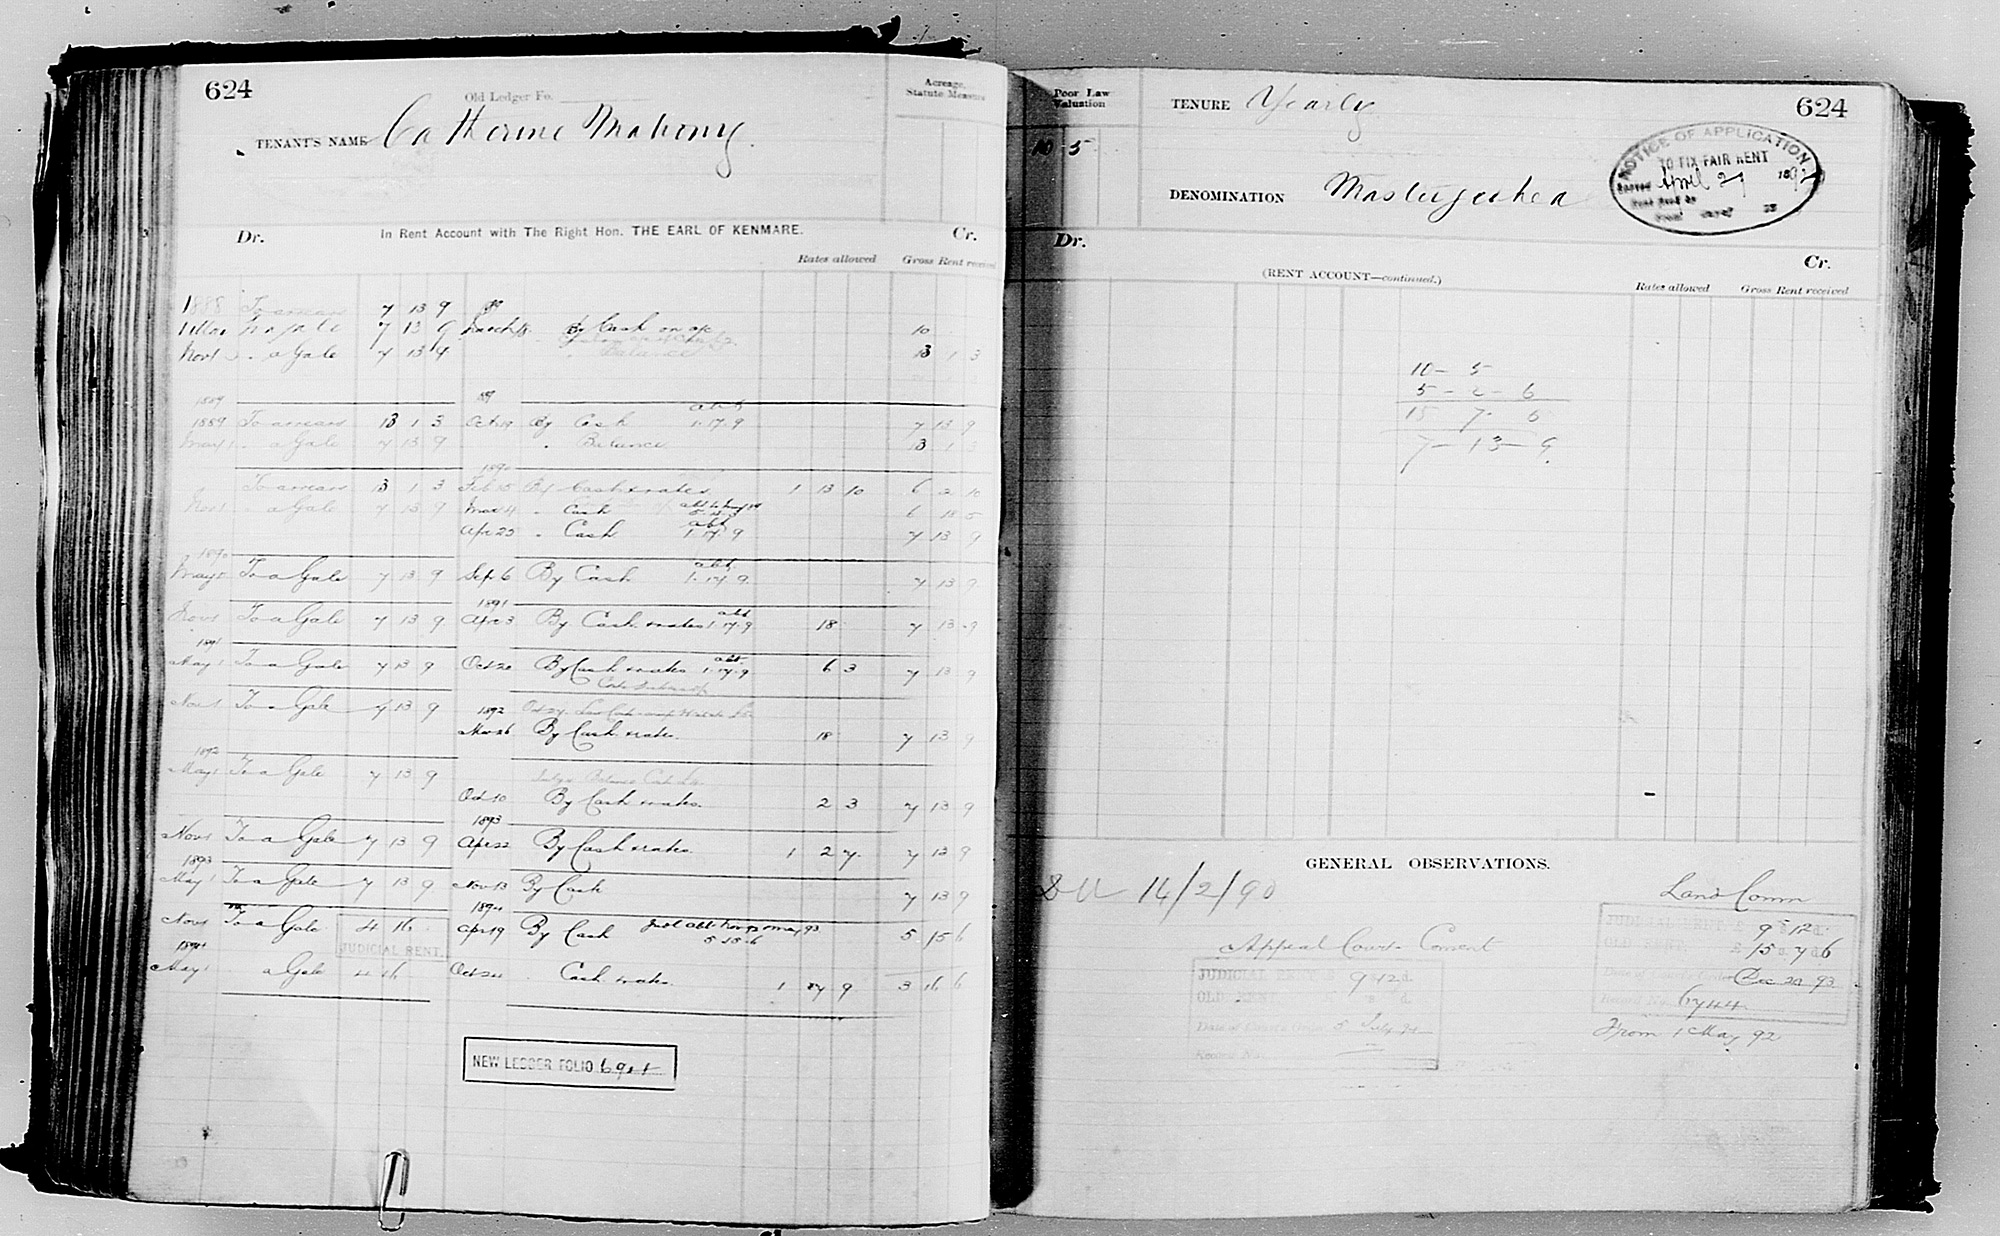 624
Old Ledger Fo.
Acreage, Statute Measure
TENANT'S NAME Catherine Mahony
Dr. In Rent Account with The Right Hon. THE EARL OF KENMARE. Cr.
Rates allowed Gross Rent received
1888 To arrears 7 13 9
7 13 9 March 18 By Cash on a/c 10
Nov 1 " a Gale 7 13 9 " Balance 13 1 3
1889
1889 To arrears 13 1 3 Oct 19 By Cash abt 1.17.9 7 13 9
May 1 " a Gale 7 13 9 " Balance 13 1 3
1890
To arrears 13 1 3 Feb 15 By Cash & rates 1 13 10 6 2 10
Nov 1 " a Gale 7 13 9 Mar 4 " Cash 6 18 5
Apr 25 " Cash abt 1.17.9 7 13 9
1890
May 1 To a Gale 7 13 9 Sep 6 By Cash abt 1.17.9 7 13 9
1891
Nov 1 To a Gale 7 13 9 Apr 3 By Cash & rates abt 1.17.9 18 7 13 9
1891
May 1 To a Gale 7 13 9 Oct 20 By Cash & rates abt 1.17.9 6 3 7 13 9
Nov 1 To a Gale 7 13 9 1892
Mar 26 By Cash & rates 18 7 13 9
1892
May 1 To a Gale 7 13 9
Oct 10 By Cash & rates. 2 3 7 13 9
1893
Nov 1 To a Gale 7 13 9 Apr 22 By Cash & rates 1 2 7 7 13 9
1893
May 1 To a Gale 7 13 9 Nov 13 By Cash 7 13 9
1894
Nov 1 To a Gale 4 16 Apr 19 By Cash 5 15 6
JUDICIAL RENT.
1894
May 1 a Gale 4 16 Oct 24 Cash & rates. 3 16 6
NEW LEDGER FOLIO
Poor Law Valuation
10 - 5
TENURE Yearly
624
NOTICE OF APPLICATION
TO FIX FAIR RENT
Served April 29 1892
DENOMINATION Mastergeehea
Dr. Cr.
(RENT ACCOUNT—continued.)
Rates allowed Gross Rent received
10 - 5
5 - 2 - 6
15 7 6
7 - 13 - 9
GENERAL OBSERVATIONS.
14/2/90
Land Comm
JUDICIAL RENT £ 9 s. 12 d.
OLD RENT £ 15 s. 7 d. 6
Dec 20 93
Record No. 6744
From 1 May 92
Appeal Court Consent
JUDICIAL 9 12 d.
OLD RENT
Date of Court's Order 5 July 94
Record No.